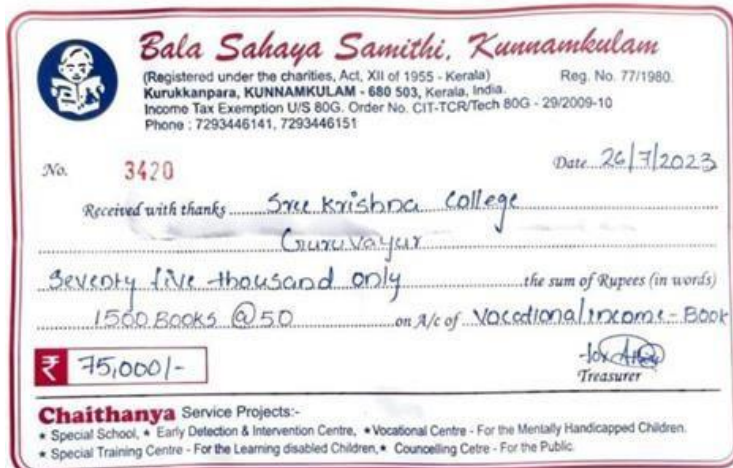 Bala Sahaya Samithi, Kunnamkulam
(Registered under the charities, Act, XII of 1955 - Kerala) Reg. No. 77/1980.
Kurukkanpara, KUNNAMKULAM - 680 503, Kerala, India.
Income Tax Exemption U/S 80G. Order No. CIT-TCR/Tech 80G - 29/2009-10
Phone : 7293446141, 7293446151
No. 3420 Date 26/7/2023
Received with thanks Sree Krishna College
Guruvayur
Seventy five thousand only the sum of Rupees (in words)
1500 Books @ 50 on A/c of Vocational income - Book
₹ 75,000/-
Treasurer
Chaithanya Service Projects:-
★ Special School, ★ Early Detection & Intervention Centre, ★ Vocational Centre - For the Mentally Handicapped Children.
★ Special Training Centre - For the Learning disabled Children, ★ Councelling Cetre - For the Public.